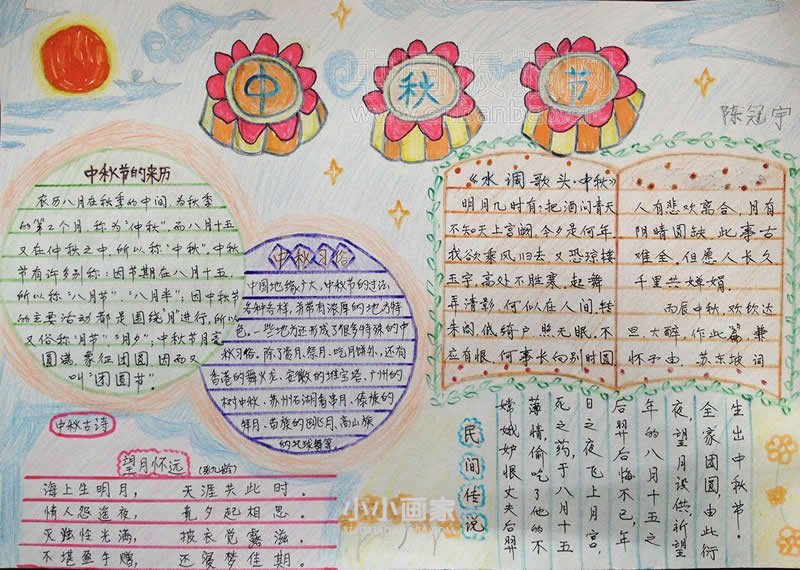 中 秋 节
陈冠宇
中秋节的来历
农历八月在秋季的中间,为秋季
的第2个月,称为"仲秋",而八月十五
又在仲秋之中,所以称"中秋",中秋
节有许别称:因节期在八月十五,
所以称"八月节","八月半",因中秋节
的主要活动都是围绕"月"进行,所以
又俗称"月节","月夕",中秋节月亮
圆满,象征团圆,因而又
叫"团圆节"。
中秋习俗
中国地缘广大,中秋节的过法,
各种各样,并带有浓厚的地方特
色。一些地方还形成了很多特殊的中
秋习俗,除了赏月,祭月,吃月饼外,还有
香港的舞火龙、安徽的堆宝塔、广州的
树中秋、苏州石湖看串月、傣族的
拜月、苗族的跳月、高山族
的托球舞等。
《水调歌头·中秋》
明月几时有,把酒问青天
不知天上宫阙,今夕是何年
我欲乘风归去,又恐琼楼
玉宇,高处不胜寒,起舞
弄清影,何似在人间,转
朱阁,低绮户,照无眠,不
应有恨,何事长向别时圆
人有悲欢离合,月有
阴晴圆缺,此事古
难全,但愿人长久
千里共婵娟。
丙辰中秋,欢饮达
旦,大醉,作此篇,兼
怀子由。苏东坡 词
中秋古诗
望月怀远(张九龄)
海上生明月, 天涯共此时。
情人怨遥夜, 竟夕起相思。
灭烛怜光满, 披衣觉露滋。
不堪盈手赠, 还寝梦佳期。
民间传说
嫦娥妒恨丈夫后羿
薄情,偷吃了他的不
死之药,于八月十五
日之夜飞上月宫,
后羿后悔不已,年
年的八月十五之
夜,望月设供,祈望
全家团圆,由此衍
生出中秋节。
小小画家